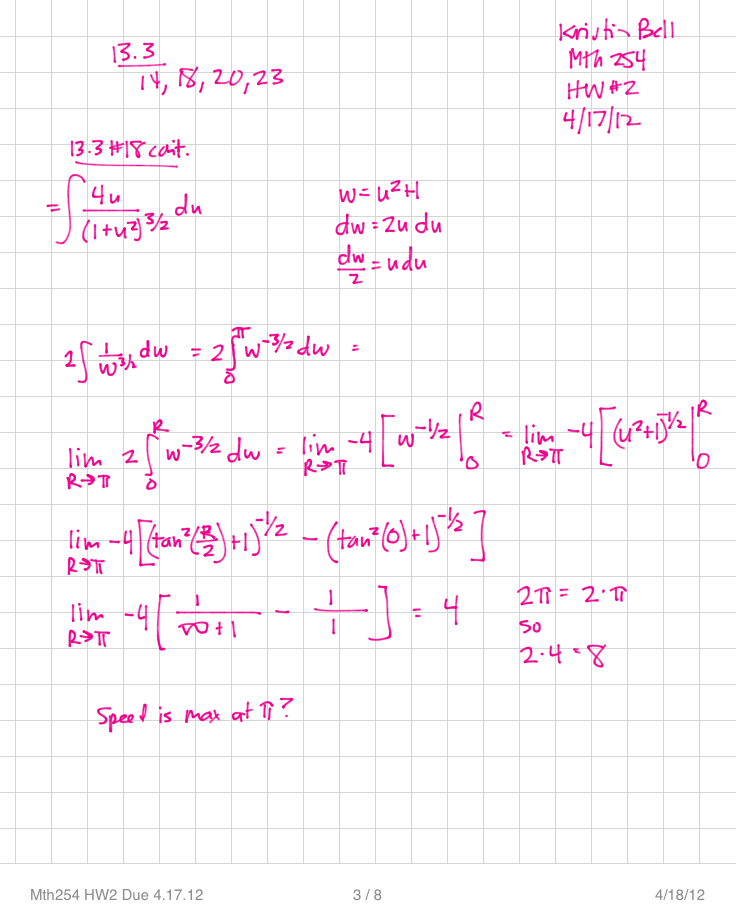 13.3
14, 18, 20, 23
Kristin Bell
Mth 254
HW #2
4/17/12
13.3 #18 cont.
= ∫ 4u / (1+u²)^3/2 du
w = u²+1
dw = 2u du
dw/2 = u du
2∫ 1/w^3/2 dw = 2∫₀^π w^-3/2 dw =
lim R→π 2∫₀^R w^-3/2 dw = lim R→π -4[w^-1/2 |₀^R = lim R→π -4[(u²+1)^-1/2 |₀^R
lim R→π -4[(tan²(R/2)+1)^-1/2 - (tan²(0)+1)^-1/2]
lim R→π -4[1/(∞+1) - 1/1] = 4
2π = 2·π
so
2·4 = 8
Speed is max at π?
Mth254 HW2 Due 4.17.12 3 / 8 4/18/12